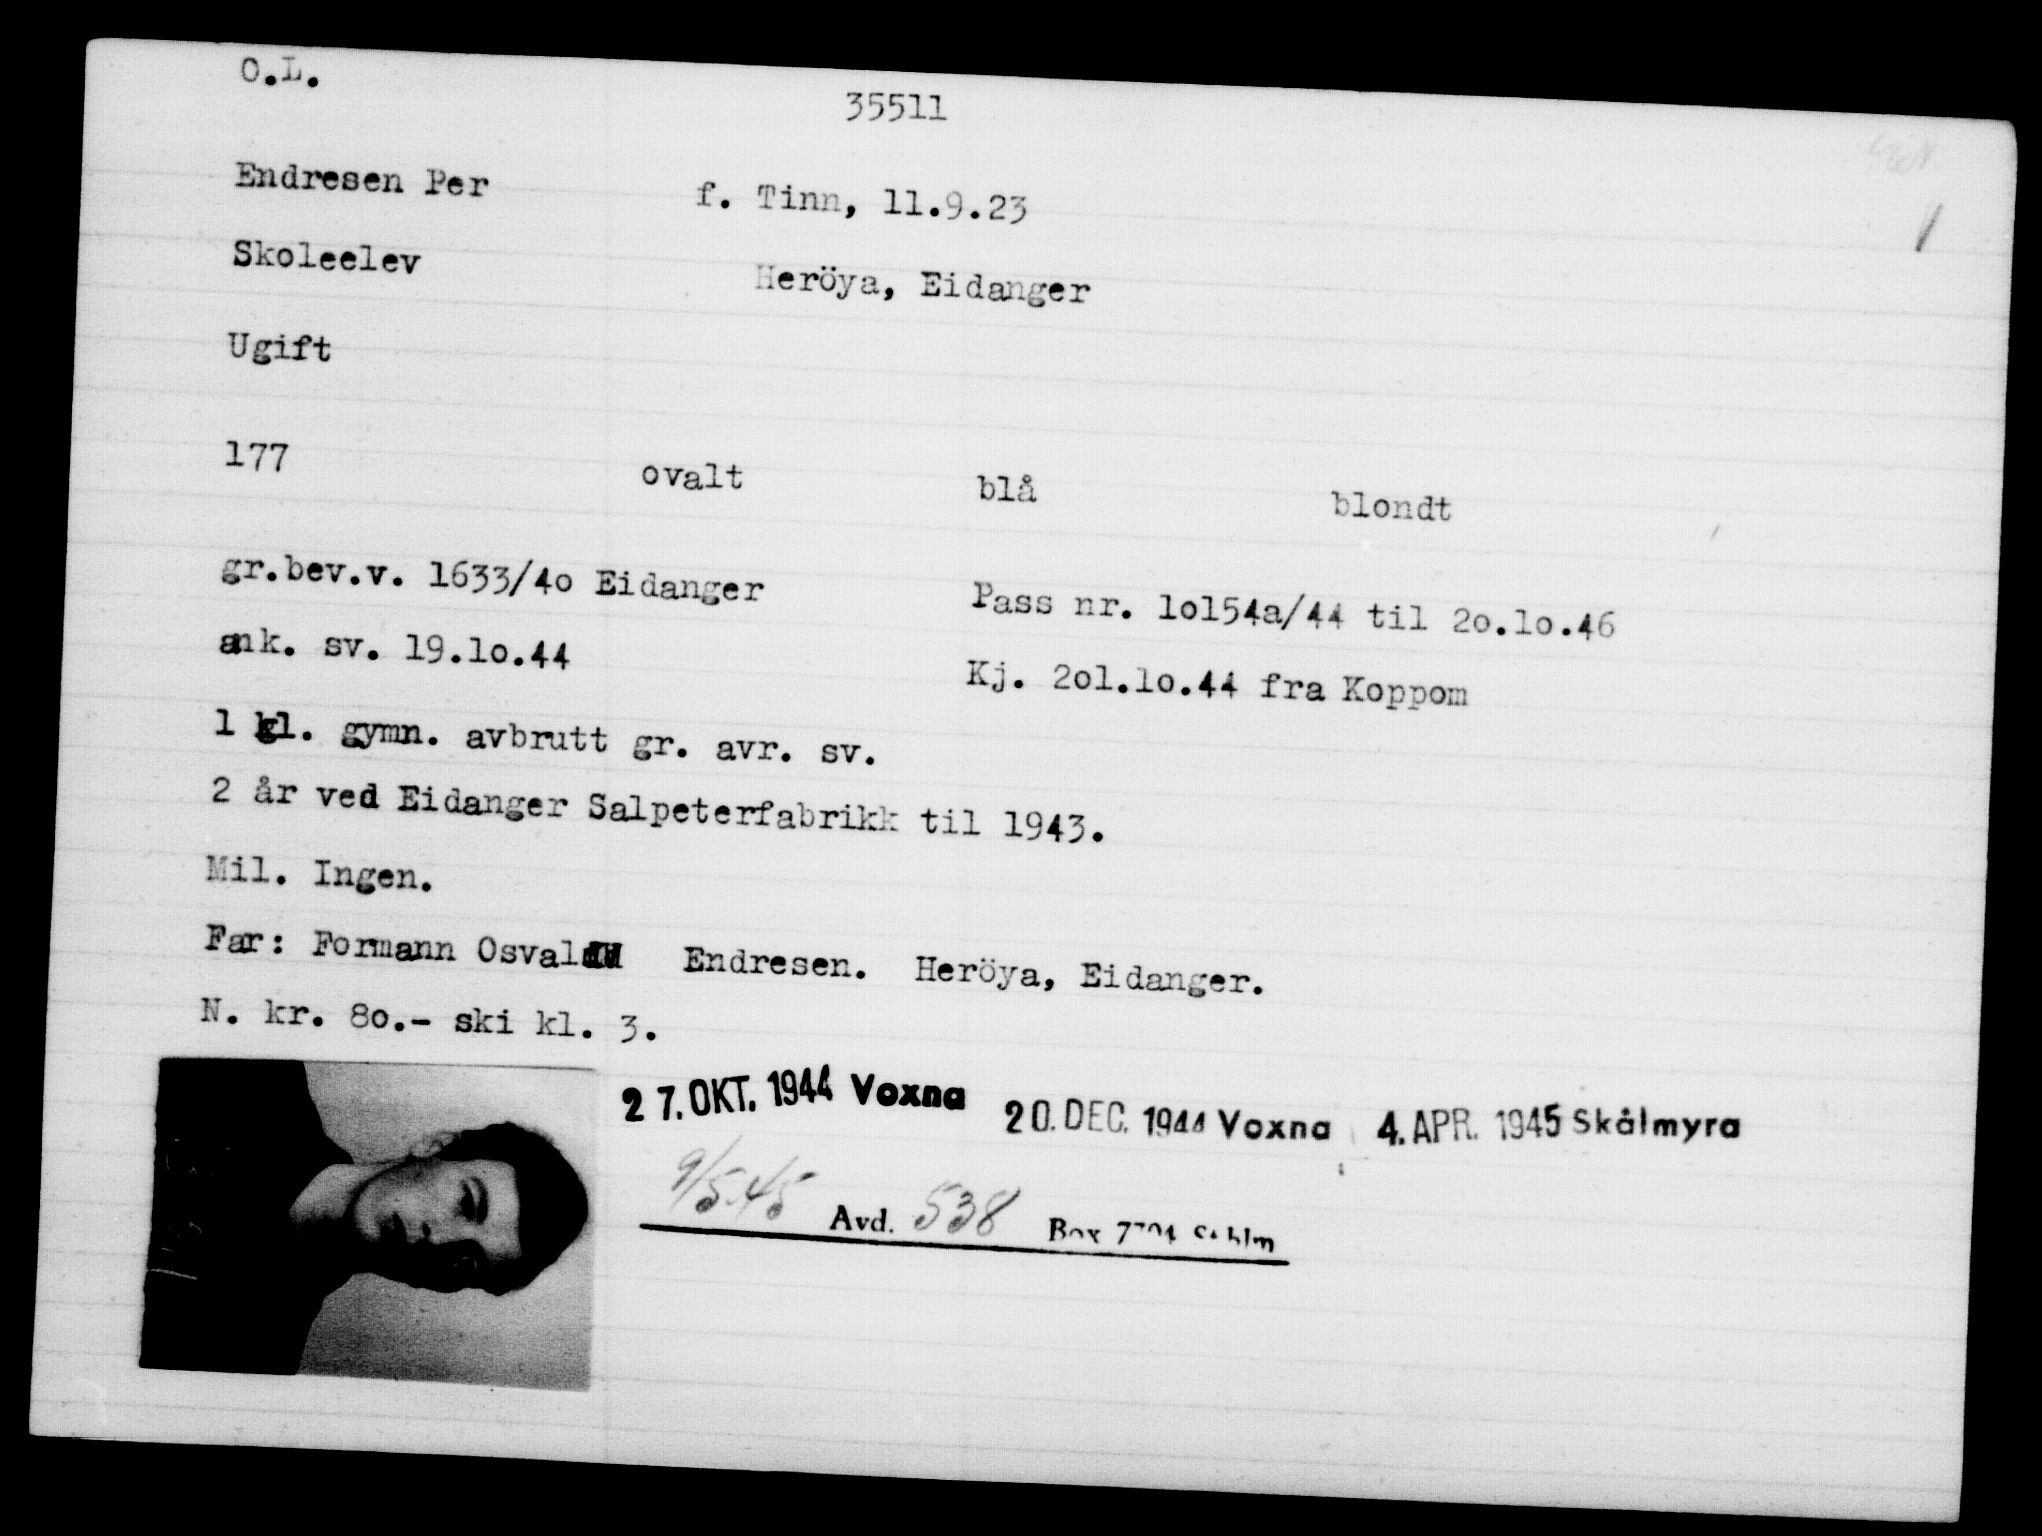 O.L.
35511
Endresen Per f. Tinn, 11.9.23
Skoleelev Heröya, Eidanger
Ugift
177 ovalt blå blondt
gr.bev.v. 1633/4o Eidanger Pass nr. 1o154a/44 til 2o.1o.46
ank. sv. 19.1o.44 Kj. 2o1.1o.44 fra Koppom
1 kl. gymn. avbrutt gr. avr. sv.
2 år ved Eidanger Salpeterfabrikk til 1943.
Mil. Ingen.
Far: Formann Osvald Endresen. Heröya, Eidanger.
N. kr. 8o.- ski kl. 3.
27. OKT. 1944 Voxna 20. DEC. 1944 Voxna 4. APR. 1945 Skålmyra
9/5.45 Avd. 538 Box
1